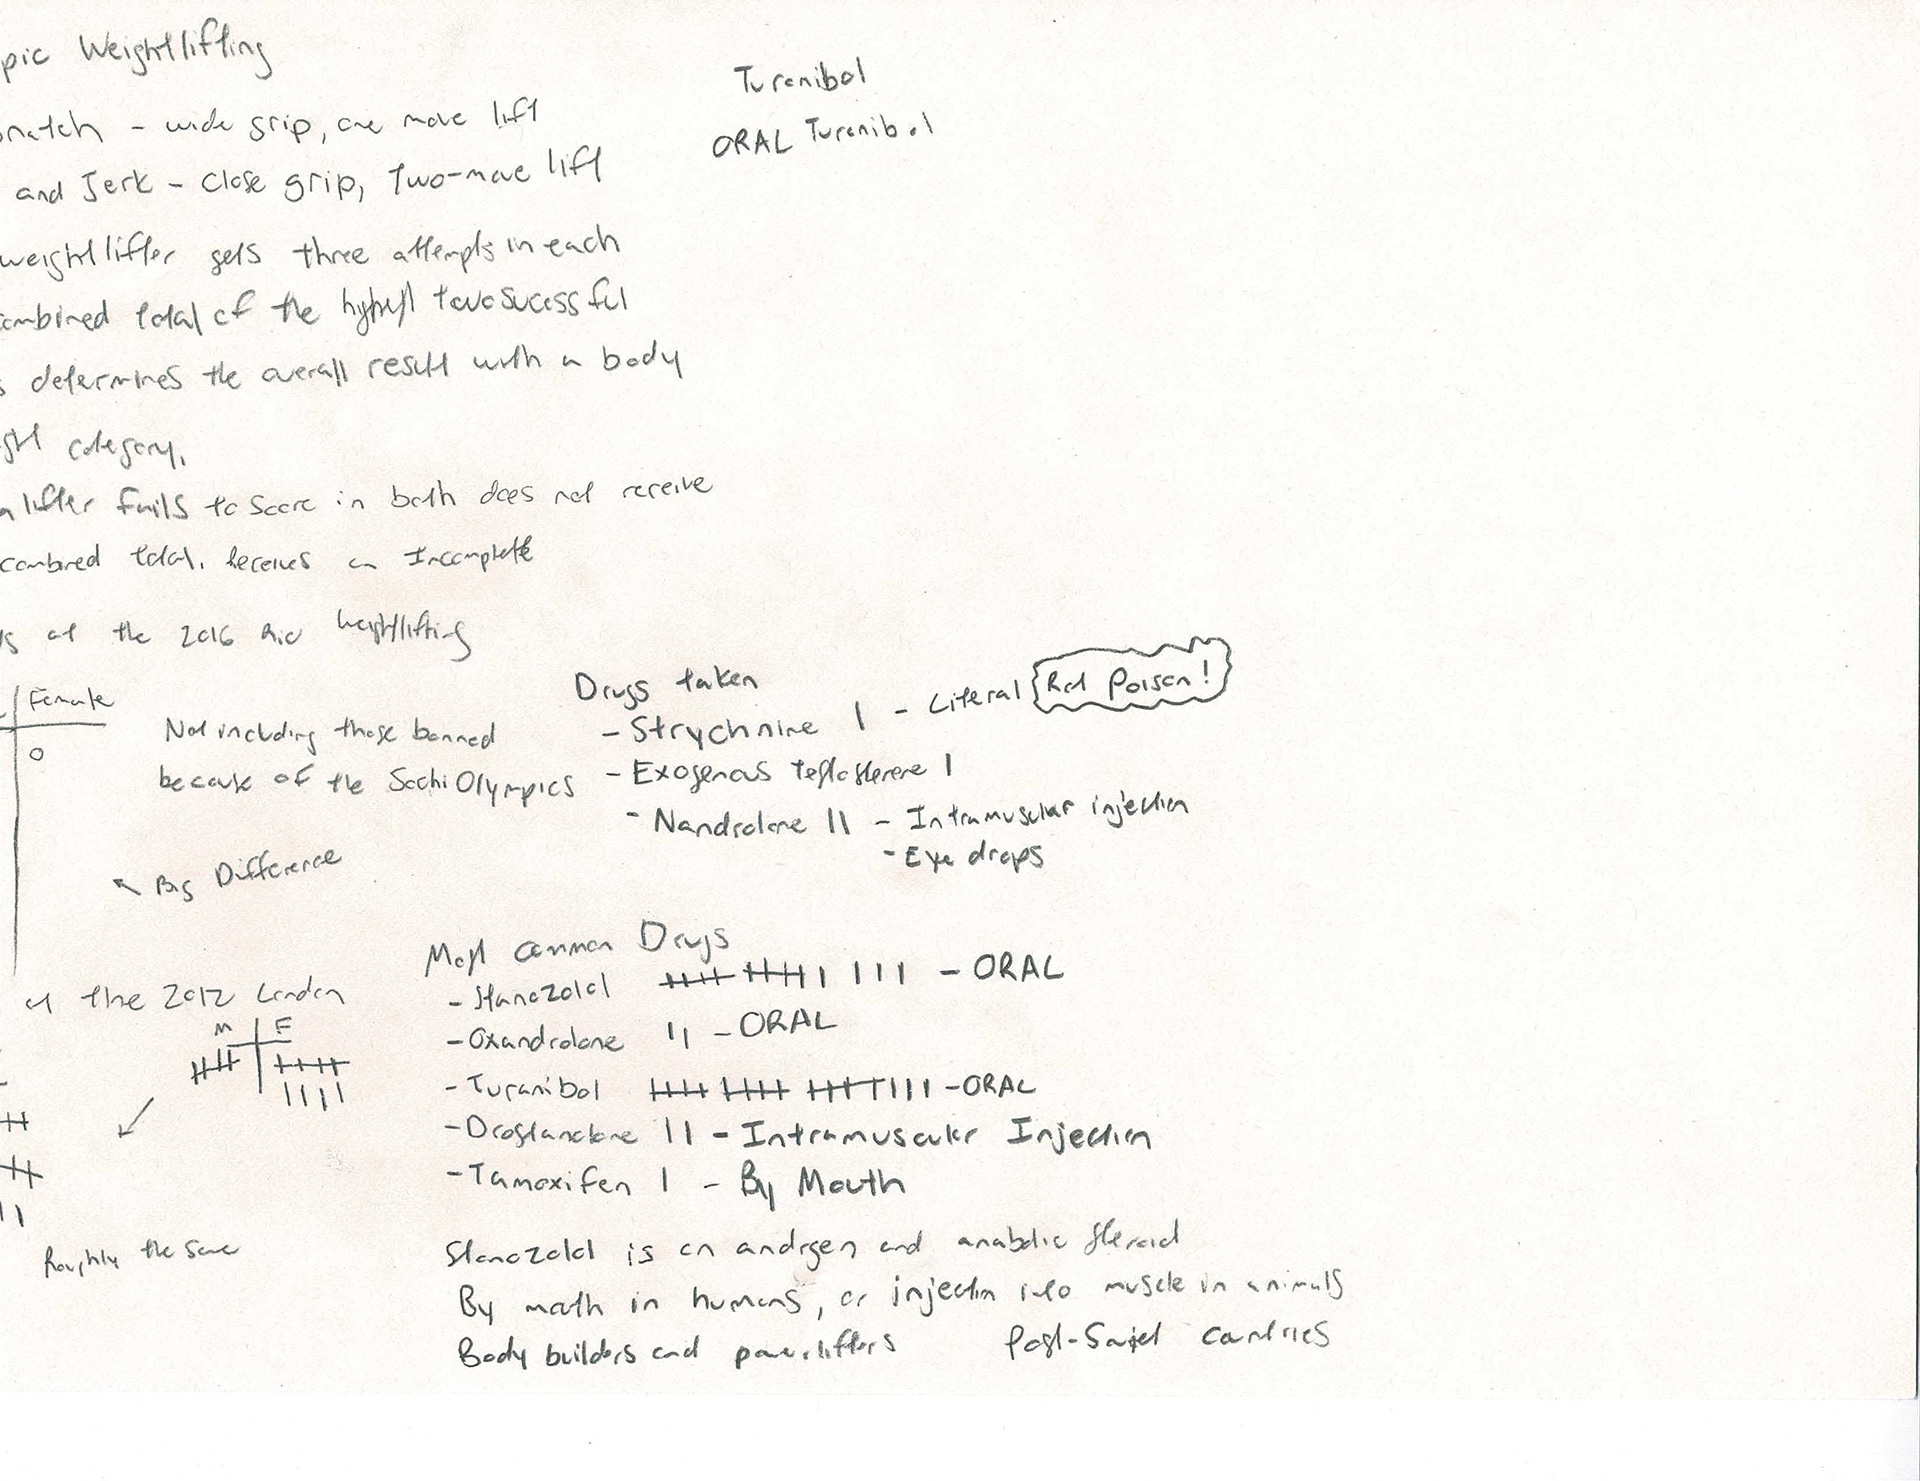 pic Weightlifting
Turanibol
natch - wide grip, one move lift
ORAL Turanibol
and Jerk - close grip, two-move lift
weightlifter gets three attempts in each
combined total of the two sucessful
s determines the overall result with a body
ght category.
a lifter fails to score in both does not receive
combined total. Receives an Incomplete
s at the 2016 Rio Weightlifting
Female
0
Not including those banned
because of the Sochi Olympics
Drugs taken
- Strychnine I - Literal Rat Poison!
- Exogenous I
- Nandrolone II - Intramuscular injection
- Eye drops
Big Difference
Most common Drugs
- Stanozolol - ORAL
at the 2012 London
M F
- Oxandrolone II - ORAL
- Turanibol - ORAL
- Drostanolone II - Intramuscular Injection
- Tamoxifen I - By Mouth
Roughly the same
Stanozolol is an and anabolic steroid
By mouth in humans, or injection into muscle in animals
Body builders and powerlifters
Post-Soviet countries